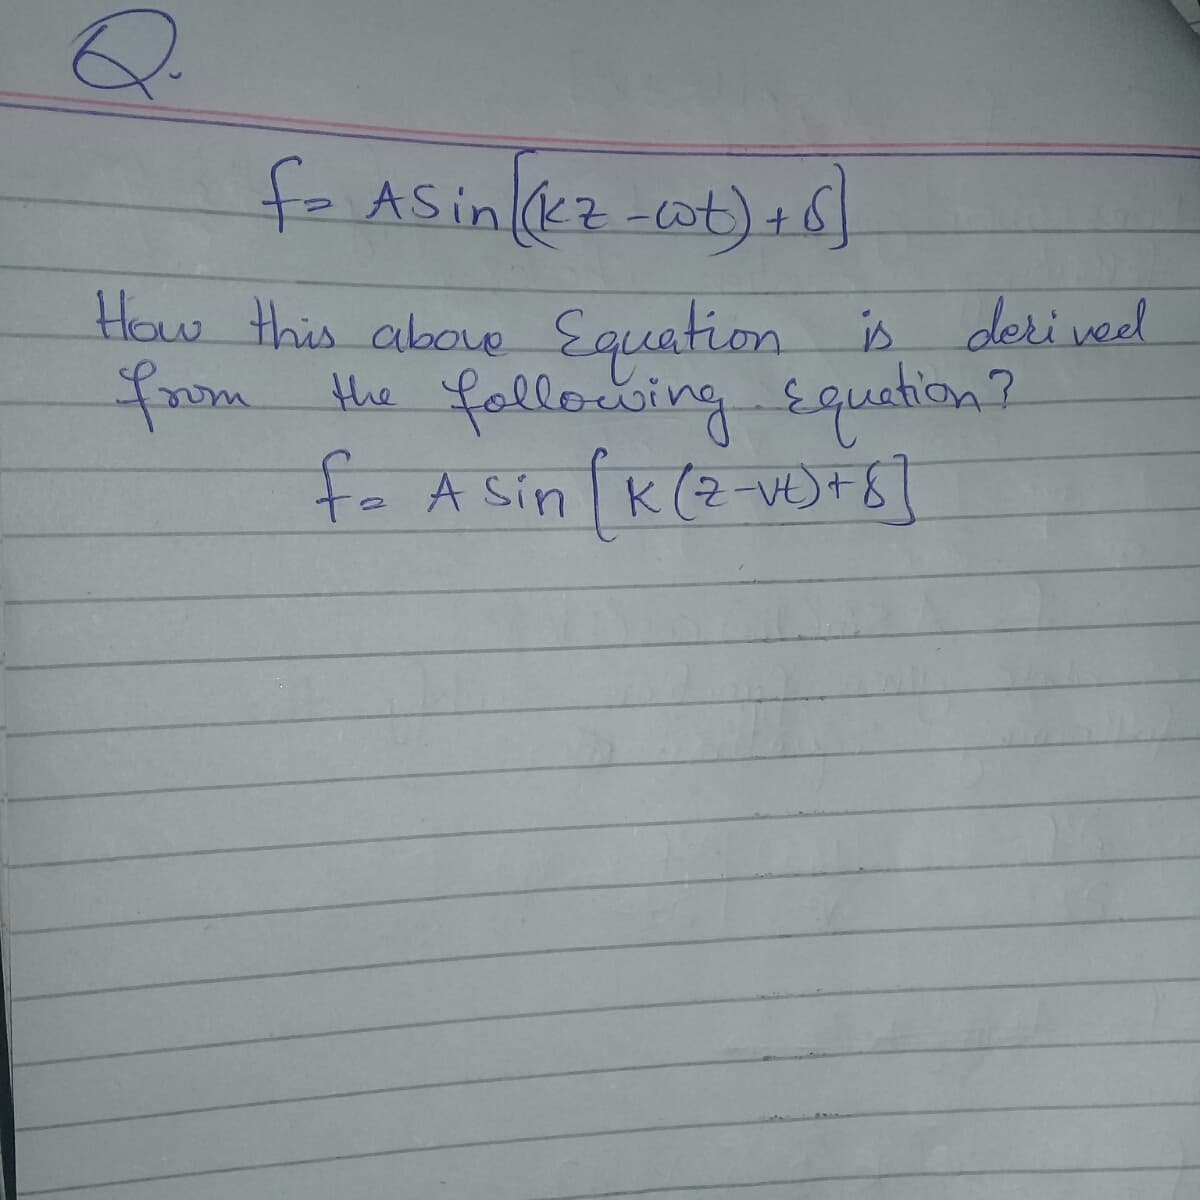 Q.
f= A Sin[(kz-ωt)+δ]
How this above Equation is derived
from the following Equation?
f= A Sin [K(z-vt)+δ]